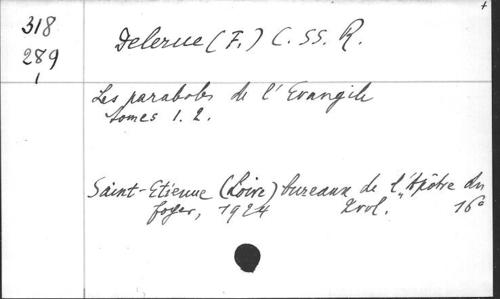 318
289
1
Delerue (F.) C. SS. R.
Les paraboles de l'Evangile
tomes 1. 2.
Saint-Etienne (Loire) bureaux de l'"Apôtre du
foyer, 1924 2 vol. 16°